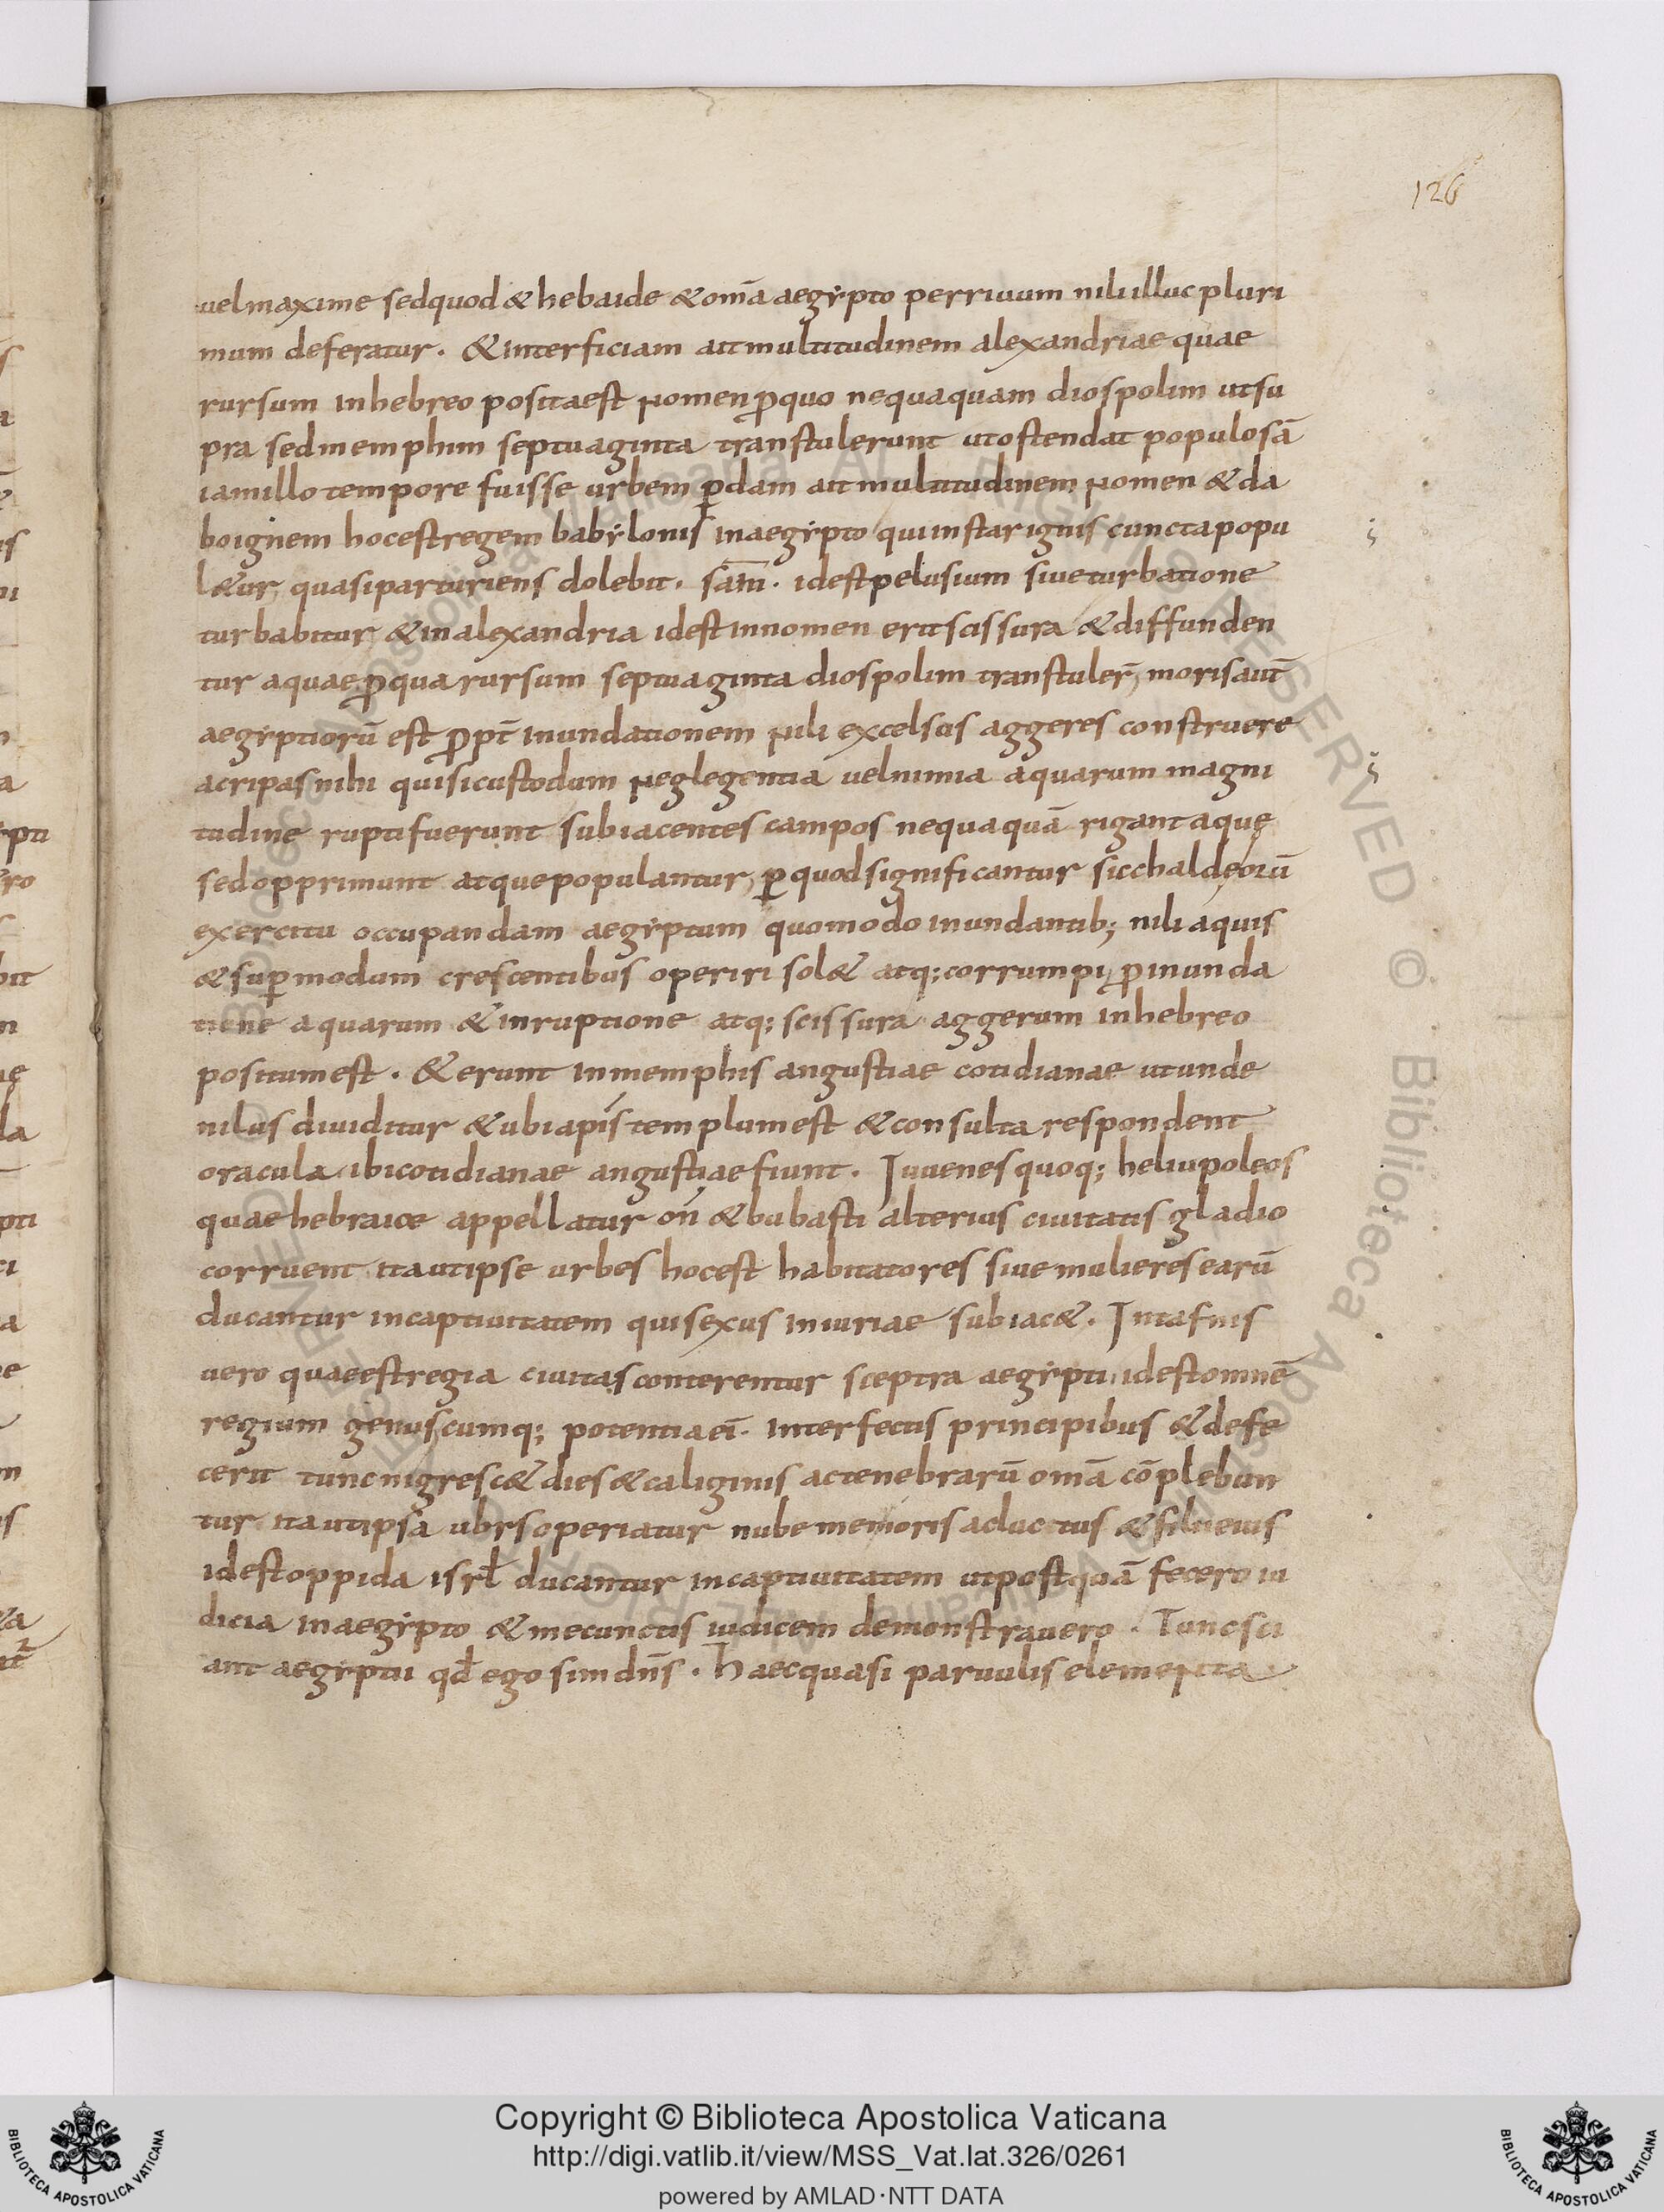 126
uel maxime sed quod & hebaide & omā aegẏpto per riuum nili illuc pluri
mum deferatur. & interficiam ait multitudinem alexandriae quae
rursum in hebreo posita est nomen ꝓ quo nequaquam diospolim ut su
pra sed memphim septuaginta transtulerunt ut ostendat populosā
iam illo tempore fuisse urbem ꝑdam ait multitudinem nomen & da
bo ignem hoc est regem babẏlonis in aegẏpto qui instar ignis cuncta popu
l&ur quasi parturiens dolebit. sām. id est pelusium siue turbatione
turbabitur & in alexandria id est in nomen erit scissura & diffunden
tur aquae ꝓ qua rursum septuaginta diospolim transtuler̄, moris aut̄
aegẏptiorū est ꝓpt̄ inundationem nili excelsis aggeres construere
ac ripas nihi qui si custodum neglegentia uel nimia aquarum magni
tudine rupti fuerunt subiacentes campos nequaquā rigant aquę
sed opprimunt atque populantur, ꝑ quod significantur sic chaldęorū
exercitu occupandam aegẏptum quomodo inundantib; nili aquis
& suꝑ modum crescentibus operiri sol& atq; corrumpi, ꝓ inunda
tiene aquarum & inruptione atq; scissura aggerum in hebreo
positum est. & erunt in memphis angustiae cotidianae ut unde
nilus diuiditur & ubi apis templum est & consulta respondent
oracula ibi cotidianae angustiae fiunt. Iuuenes quoq; heliupoleos
quae hebraice appellatur on & bubasti alterius ciuitatis gladio
corruent ita ut ipse urbes hoc est habitatores siue mulieres earū
ducantur in captiuitatem qui sexus iniuriae subiac&. In tafnis
uero quae est regia ciuitas conterentur sceptra aegẏpti, id est omnē
regium genus cumq; potentia ei. interfectis principibus & defe
cerit tunc nigresc& dies & caliginis ac tenebrarū omā cōplebun
tur ita ut ipsa ubrs operiatur nube memoris ac luctus & filii eius
id est oppida isrl̄ ducantur in captiuitatem ut postquā fecero iu
dicia in aegẏpto & me cunctis iudicem demonstrauero. Tunc sci
ant aegẏptii qd̄ ego sim dn̄s. haec quasi paruulis elementa
Copyright © Biblioteca Apostolica Vaticana
http://digi.vatlib.it/view/MSS_Vat.lat.326/0261
powered by AMLAD·NTT DATA
BIBLIOTECA APOSTOLICA VATICANA
BIBLIOTECA APOSTOLICA VATICANA